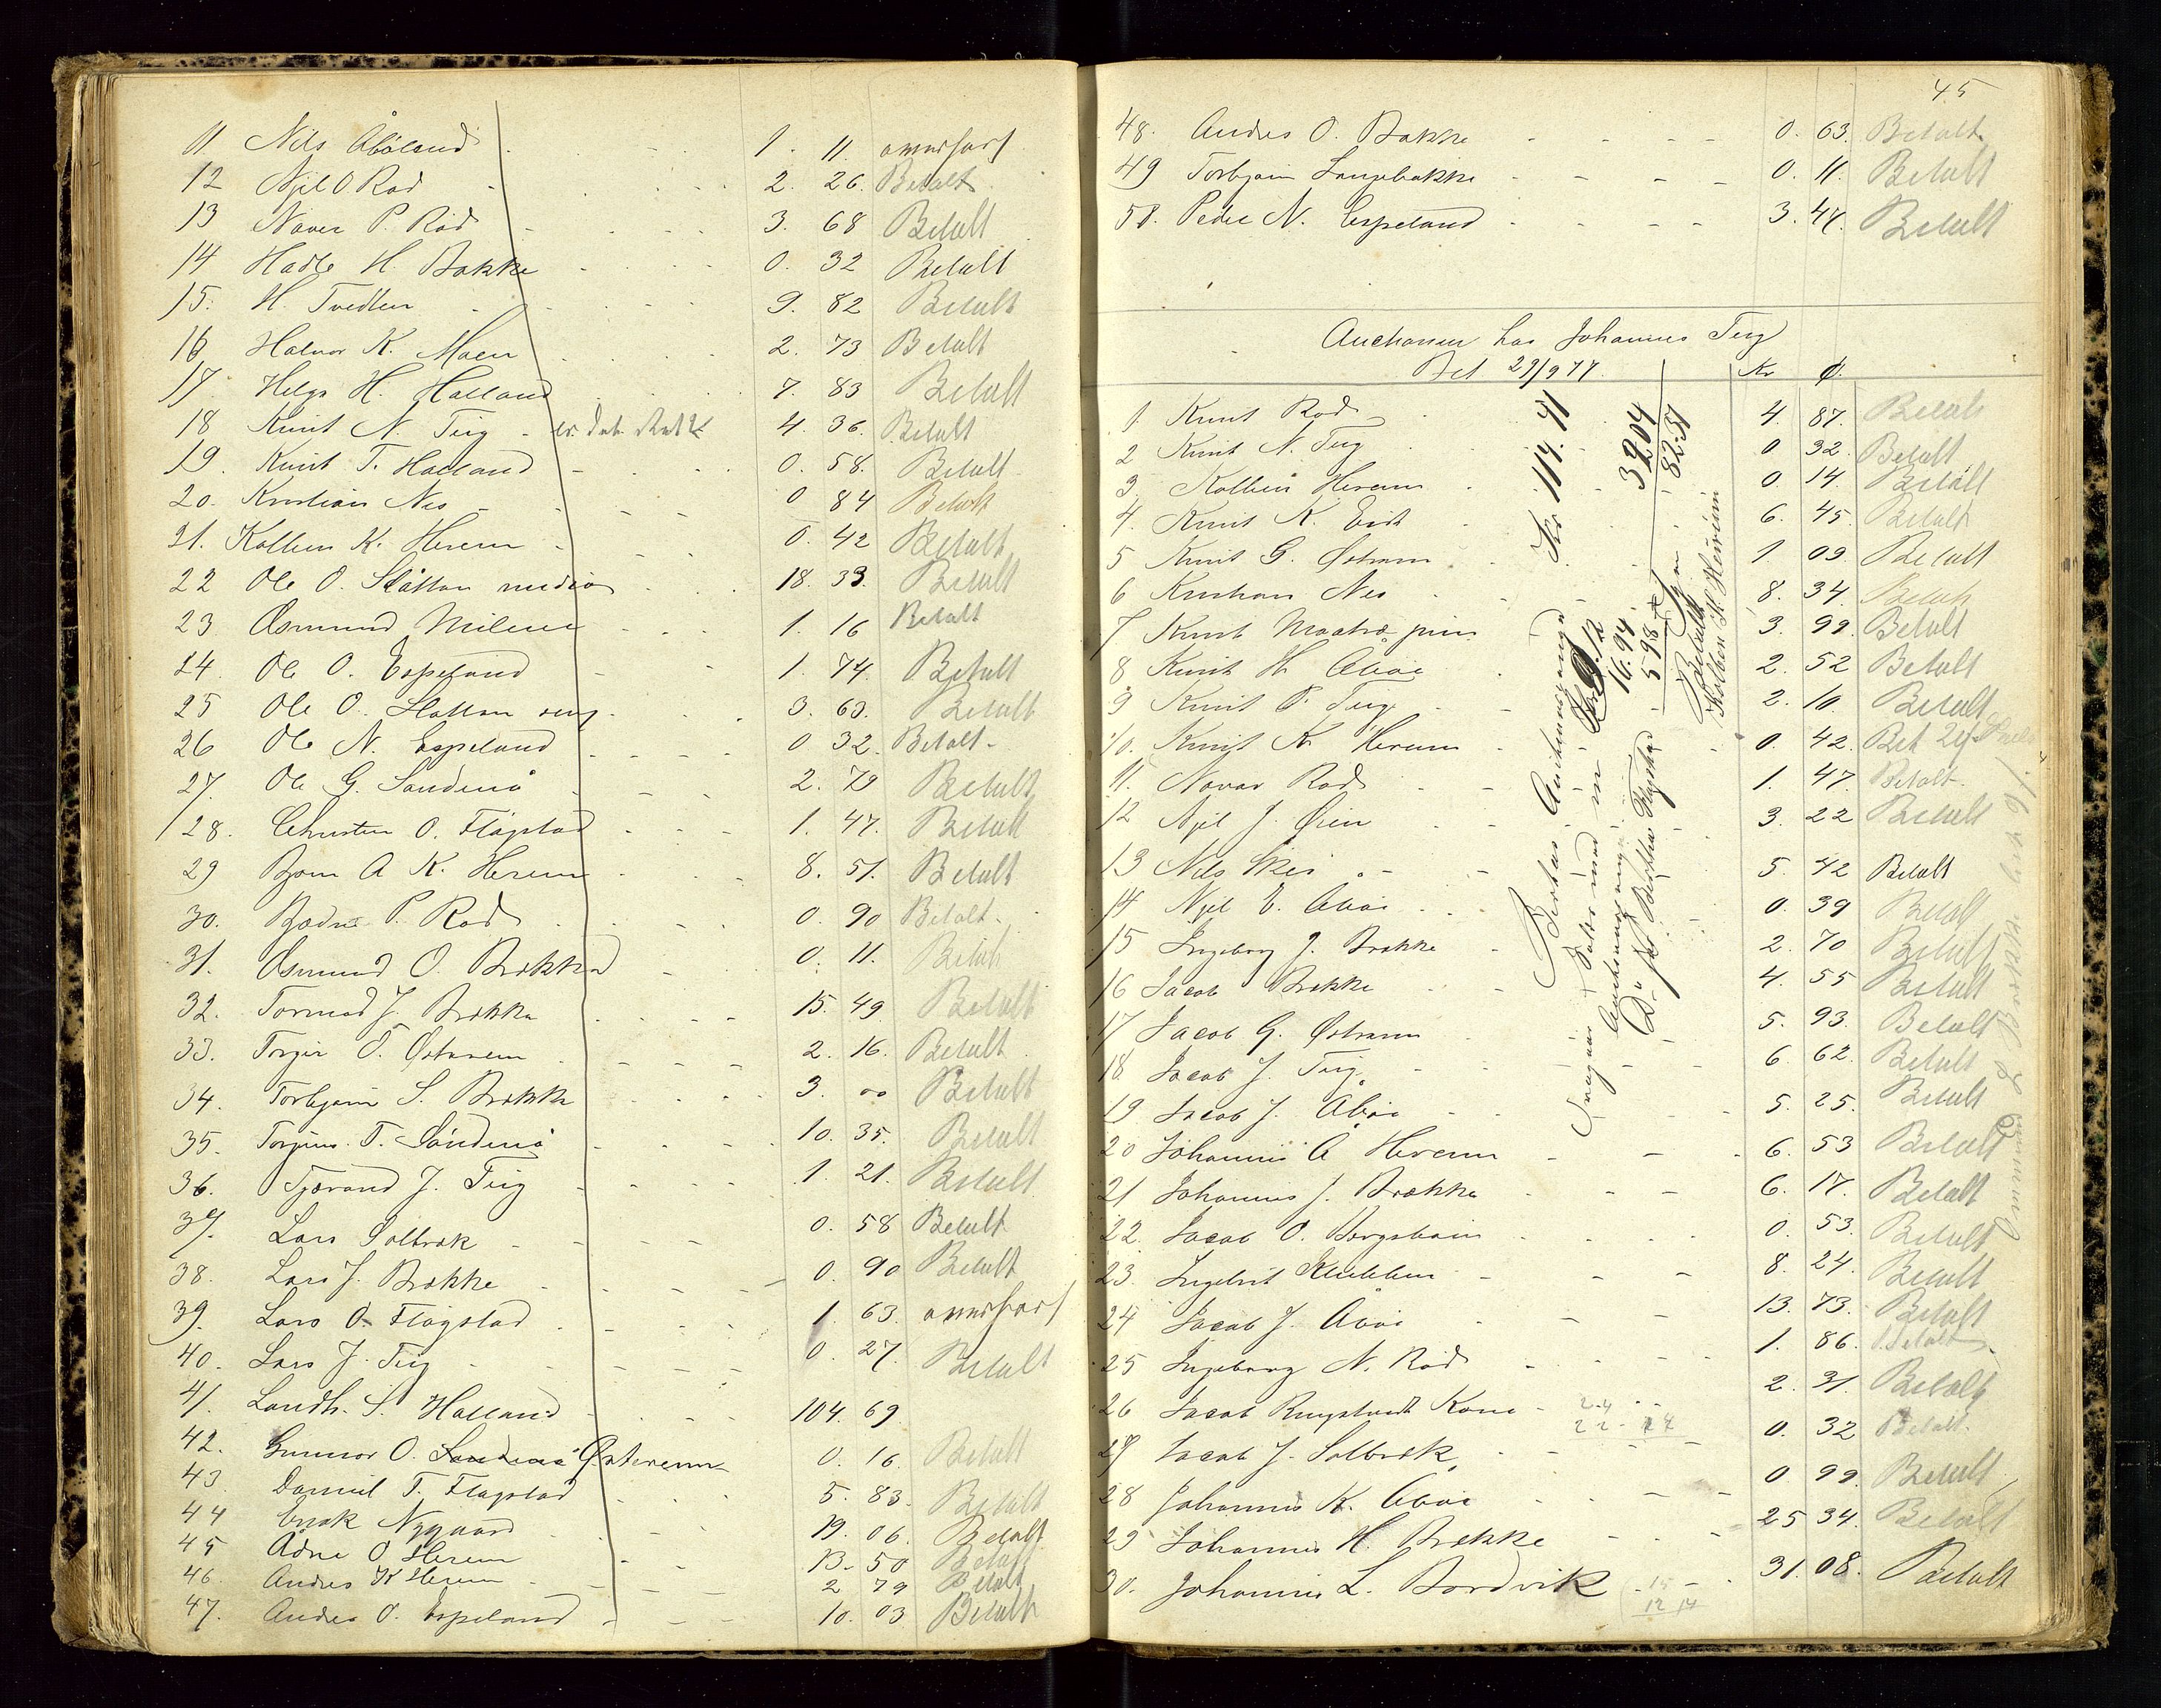 11 Nils Åböland 1. 11. overført
12 Njel O Rød 2. 26. Betalt
13 Naver P. Rød 3. 68 Betalt
14 Hadle H. Bakke 0. 32 Betalt
15. H. Tvedten 9. 82 Betalt
16 Halvor K. Moen 2. 73 Betalt
17. Helge H. Halland 7. 83 Betalt
18 Knut N. Teig 4. 36. Betalt
19. Knut T. Halland 0. 58. Betalt
20. Kristian Nes 0 84 Betalt
21. Kolben K. Herem 0. 42 Betalt
22 Ole O. Slåtten nedre 18. 33. Betalt
23 Osmund Milene 1. 16 Betalt
24. Ole O. Espeland 1. 74. Betalt
25 Ole O. Slåtten 3. 63. Betalt
26 Ole N. Espeland 0 32. Betalt
27. Ole G. Sandenå 2. 79 Betalt
28. Christen O. Flågstad 1. 47. Betalt
29 Bjørn A K. Herem 8. 51. Betalt
30. Bjødne P. Rød 0. 90 Betalt
31. Osmund O. Brekke 0. 11. Betalt
32. Tormod J. Brekke 15. 49 Betalt
33. Torger O. Østrem 2. 16. Betalt
34. Torbjørn S. Brekke 3. 00 Betalt
35. Torgius T. Sandenå 10. 35. Betalt
36. Tjerand J. Teig 1. 21. Betalt
37. Lars Solbrek 0. 58 Betalt
38. Lars J. Brekke 0. 90 Betalt
39. Lars O. Flågstad 1. 63. overført
40. Lars J. Teig 0. 27. Betalt
41. Landh. S. Halland 104. 69
42. Gunnar O. Sandenå Østerem 0. 16. Betalt
43 Daniel T. Flagstad 5. 83. Betalt
44 Enok Nygaard 19. 06. Betalt
45 Ådne O. Herem 13. 50 Betalt
46. Andres K Herem 2 79 Betalt
47. Andres O. Espeland 10. 03 Betalt
45
48. Andres O. Bakke 0. 63. Betalt
49 Torbjørn Langebakke 0. 11. Betalt
50. Peder N. Espeland 3. 47. Betalt
Auctionen hos Johannes Teig
Det 29/9 77. Kr Ø.
1. Knut Rød 4 87. Betalt
2 Knut N. Teig 0 32. Betalt
3. Kolben Herem 0. 14. Betalt
4. Knut K. Eid 6. 45. Betalt
5 Knut G. Østrem 1 09. Betalt
6 Kristian Nes 8. 34. Betalt
7 Knut 3. 99. Betalt
8 Knut H. Åbøe 2. 52 Betalt
9 Knut P. Teig 2. 10. Betalt
10. Knut K. Herem 0. 42. Bet
11. Navar Rød 1. 47. Betalt
12 Njel J. Øien 3. 22 Betalt
13 Nils Skei 5. 42 Betalt
14 Njel E. Åbøe 0. 39 Betalt
15 Ingeborg J. Brekke 2. 70 Betalt
16 Jacob Brekke 4. 55 Betalt
17 Jacob G. Østrem 5. 93. Betalt
18. Jacob J. Teig 6. 62. Betalt
19 Jacob J. Åbøe 5. 25. Betalt
20 Johannes A Herem 6. 53 Betalt
21 Johannes J. Brekke 6. 17. Betalt
22. Jacob O. Bergstøien 0. 53. Betalt
23. Ingebrit Klubben 8. 24. Betalt
24 Jacob J. Åbøe 13. 73. Betalt
25 Ingeborg N. Rød 1. 86. Betalt
26 Jacob Ringstvedt Kone 2. 31. Betalt
27 Jacob J. Solbrek 0. 32 Betalt
28 Johannes K. Åbøe 0. 99. Betalt
29 Johannes H. Brekke 25 34. Betalt
30. Johannes L. Bordvik 31. 08. Betalt
Kr 114. 41
16.94
3204
82.37
Betalt
Kolben K Hereim